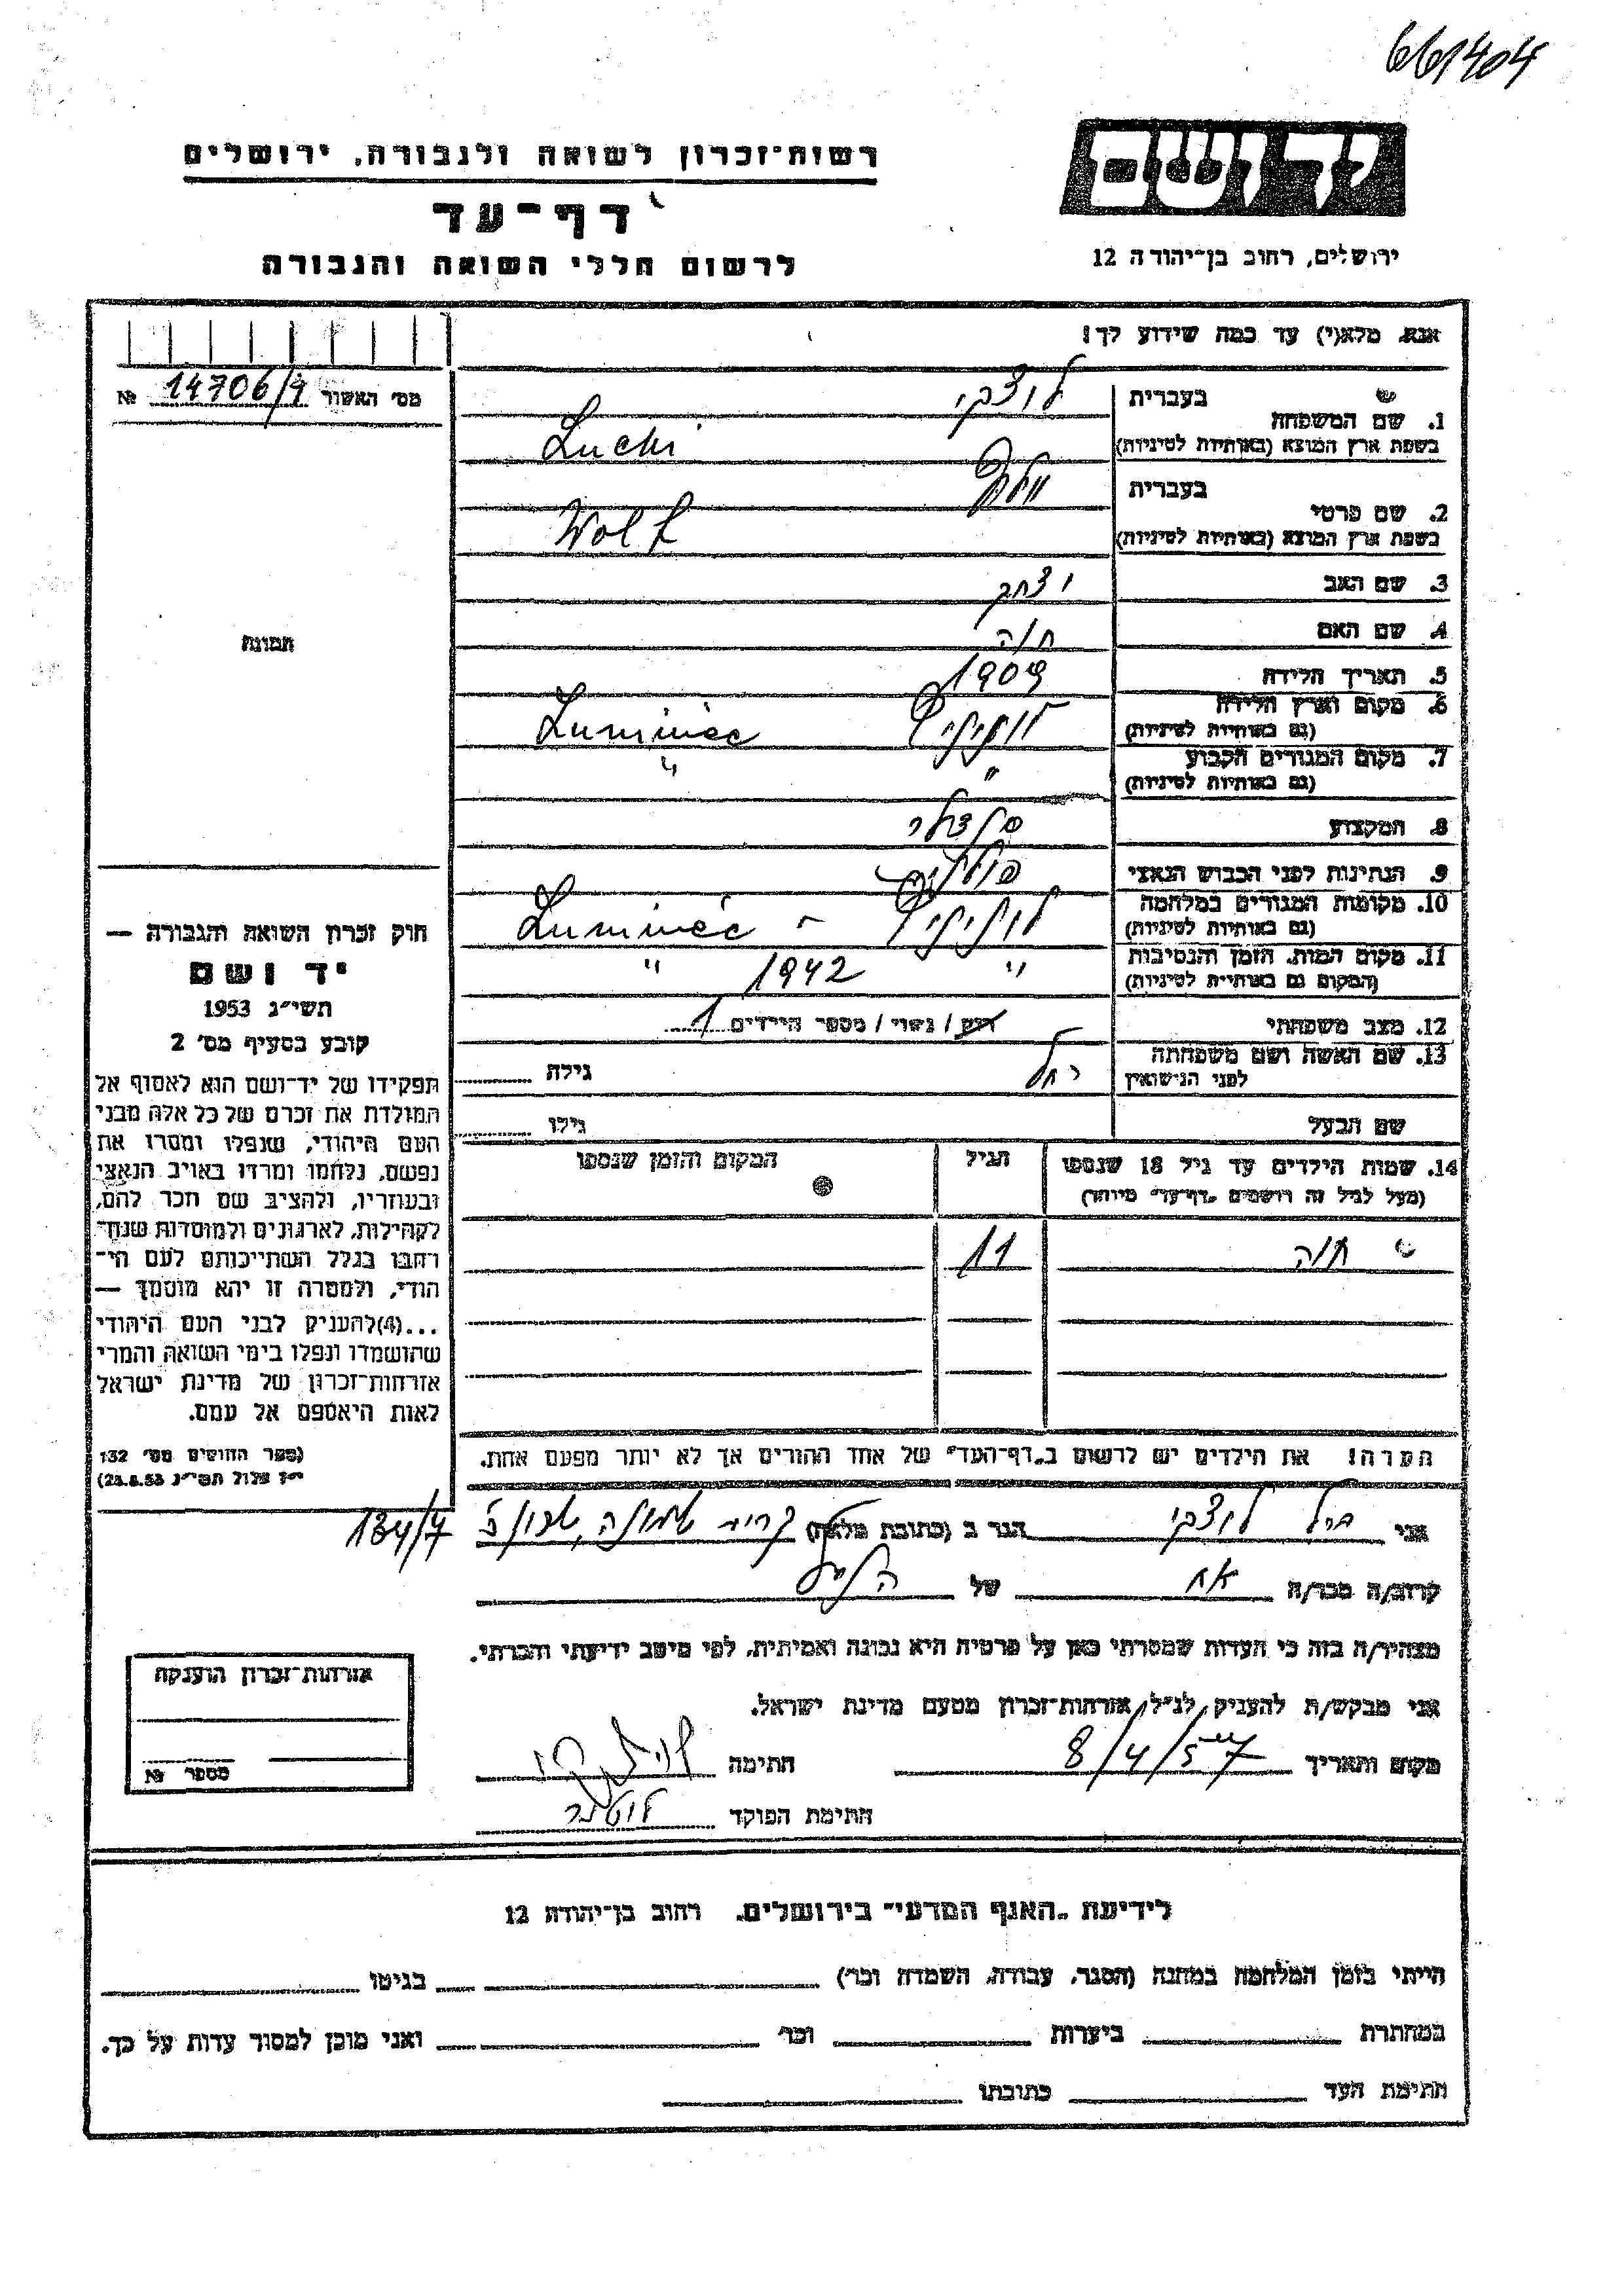 661404
יד ושם
ירושלים, רחוב בן־יהודה 12
רשות־זכרון לשואה ולגבורה, ירושלים
דף־עד
לרשום חללי השואה והגבורה
אנא, מלא(י) עד כמה שידוע לך!
מס' האשור 14706/ №
1. שם המשפחה
בעברית לוצקי
בשפת ארץ המוצא (באותיות לטיניות) Lucki
2. שם פרטי
בעברית וולף
בשפת ארץ המוצא (באותיות לטיניות) Wolf
3. שם האב יצחק
4. שם האם חוה
5. תאריך הלידה 1909
6. מקום וארץ הלידה
(גם באותיות לטיניות) Luminiec
7. מקום המגורים הקבוע
(גם באותיות לטיניות) " "
8. המקצוע סנדלר
9. הנתינות לפני הכבוש הנאצי פולנית
10. מקומות המגורים במלחמה
(גם באותיות לטיניות) - Luminiec
11. מקום המות, הזמן והנסיבות
(המקום גם באותיות לטיניות) " 1942 "
12. מצב משפחתי רווק / נשוי / מספר הילדים 1
13. שם האשה ושם משפחתה
לפני הנישואין רחל גילה
שם הבעל גילו
14. שמות הילדים עד גיל 18 שנספו
(מעל לגיל זה רושמים "דף־עד" מיוחד)
הגיל
המקום והזמן שנספו
חוה 11
הערה! את הילדים יש לרשום ב"דף־העד" של אחד ההורים אך לא יותר מפעם אחת.
תמונה
חוק זכרון השואה והגבורה —
יד ושם
תשי"ג 1953
קובע בסעיף מס' 2
תפקידו של יד־ושם הוא לאסוף אל
המולדת את זכרם של כל אלה מבני
העם היהודי, שנפלו ומסרו את
נפשם, נלחמו ומרדו באויב הנאצי
ובעוזריו, ולהציב שם וזכר להם,
לקהילות, לארגונים ולמוסדות שנח־
רבו בגלל השתייכותם לעם הי־
הודי, ולמטרה זו יהא מוסמך —
...(4) להעניק לבני העם היהודי
שהושמדו ונפלו בימי השואה והמרי
אזרחות־זכרון של מדינת ישראל
לאות היאספם אל עמם.
(ספר החוקים מס' 132
י"ז אלול תשי"ג 28.8.53)
אני לוצקי הגר ב (כתובת מלאה) קרית שמונה, שכון ג 134/7
קרוב/ה מכר/ה אח של הנ"ל
מצהיר/ה בזה כי העדות שמסרתי כאן על פרטיה היא נכונה ואמיתית, לפי מיטב ידיעתי והכרתי.
אני מבקש/ת להעניק לנ"ל אזרחות־זכרון מטעם מדינת ישראל.
מקום ותאריך 8/4/57 חתימה
חתימת הפוקד
אזרחות־זכרון הוענקה
מספר №
לידיעת "האגף המדעי" בירושלים, רחוב בן־יהודה 12
הייתי בזמן המלחמה במחנה (הסגר, עבודה, השמדה וכו') בגיטו
במחתרת ביערות וכו' ואני מוכן למסור עדות על כך.
חתימת העד כתובתו